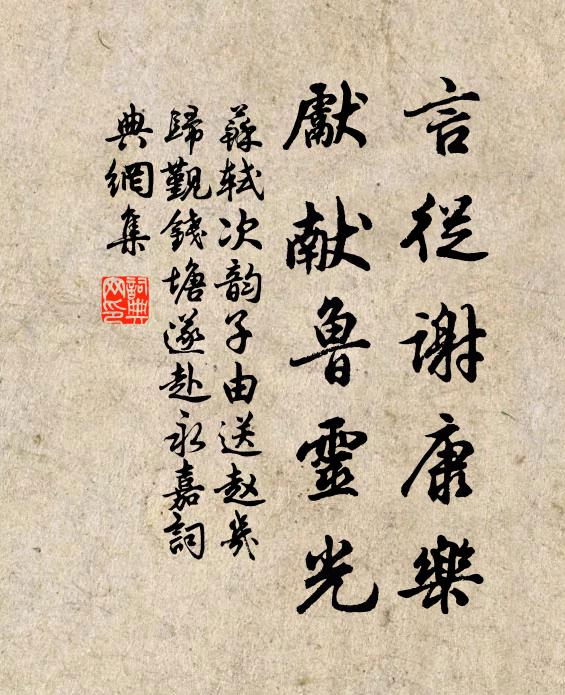 言從谢康樂
獻献魯靈光
蘇軾次韵子由送赵
歸覲錢塘遂赴永嘉詞
典網集
詞典
网印